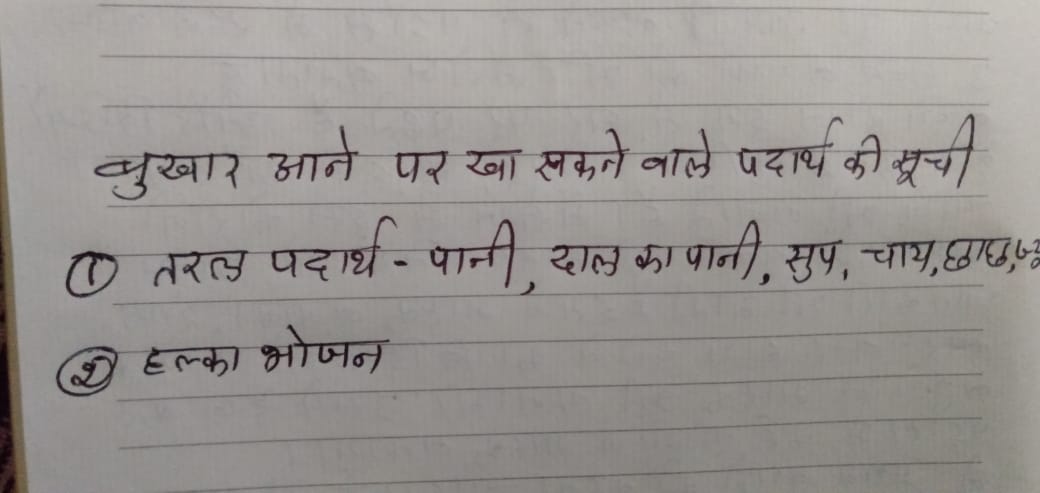 बुखार आने पर खा सकने वाले पदार्थ की सूची
① तरल पदार्थ - पानी, दाल का पानी, सुप, चाय, छाछ,
② हल्का भोजन